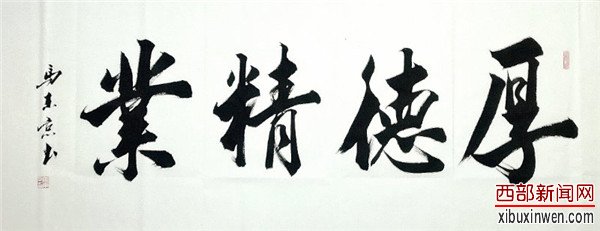 厚德精業
馬东书
西部新闻网
xibuxinwen.com